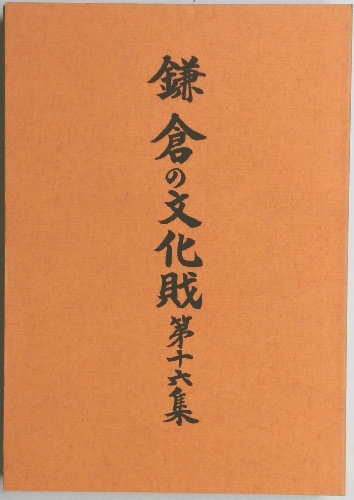 鎌倉の文化財第十六集